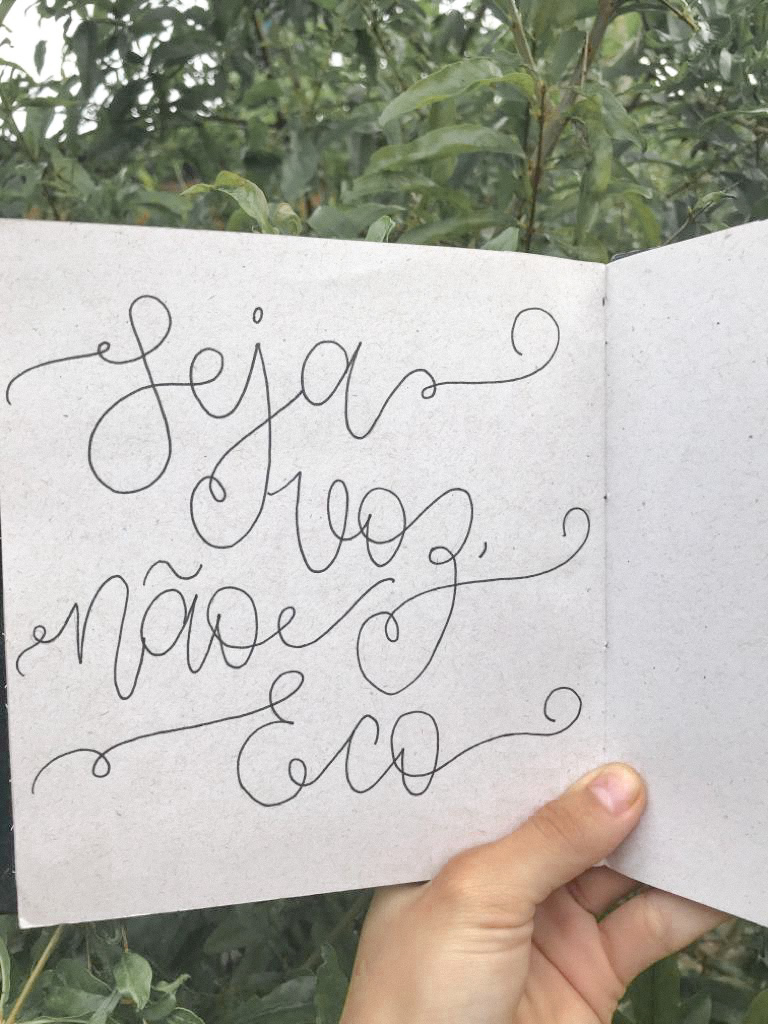 Seja
voz,
não
Eco